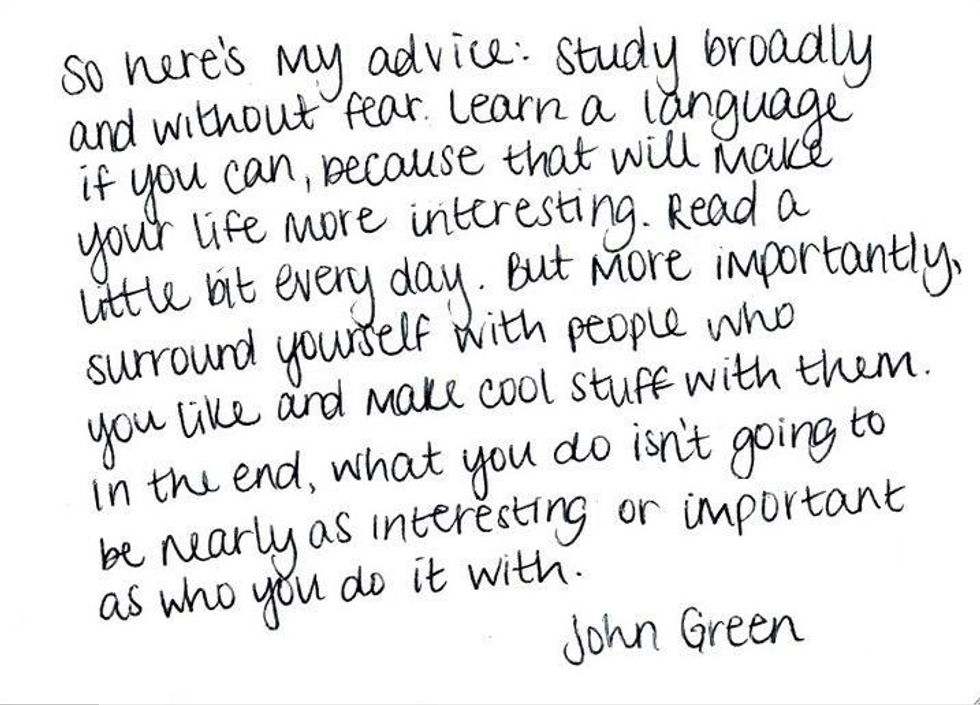 So here's my advice: Study broadly
and without fear. Learn a language
if you can, because that will make
your life more interesting. Read a
little bit every day. But more importantly,
surround yourself with people who
you like and make cool stuff with them.
In the end, what you do isn't going to
be nearly as interesting or important
as who you do it with.
John Green